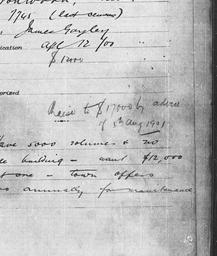 7748 (last census)
James Gayley
ication apl 12/00
$12000
orized
Raise to $17000 by advice
of 5th Aug 1901
have 5000 volumes & no
building - want $12,000
one - town offers
annually for maintenance